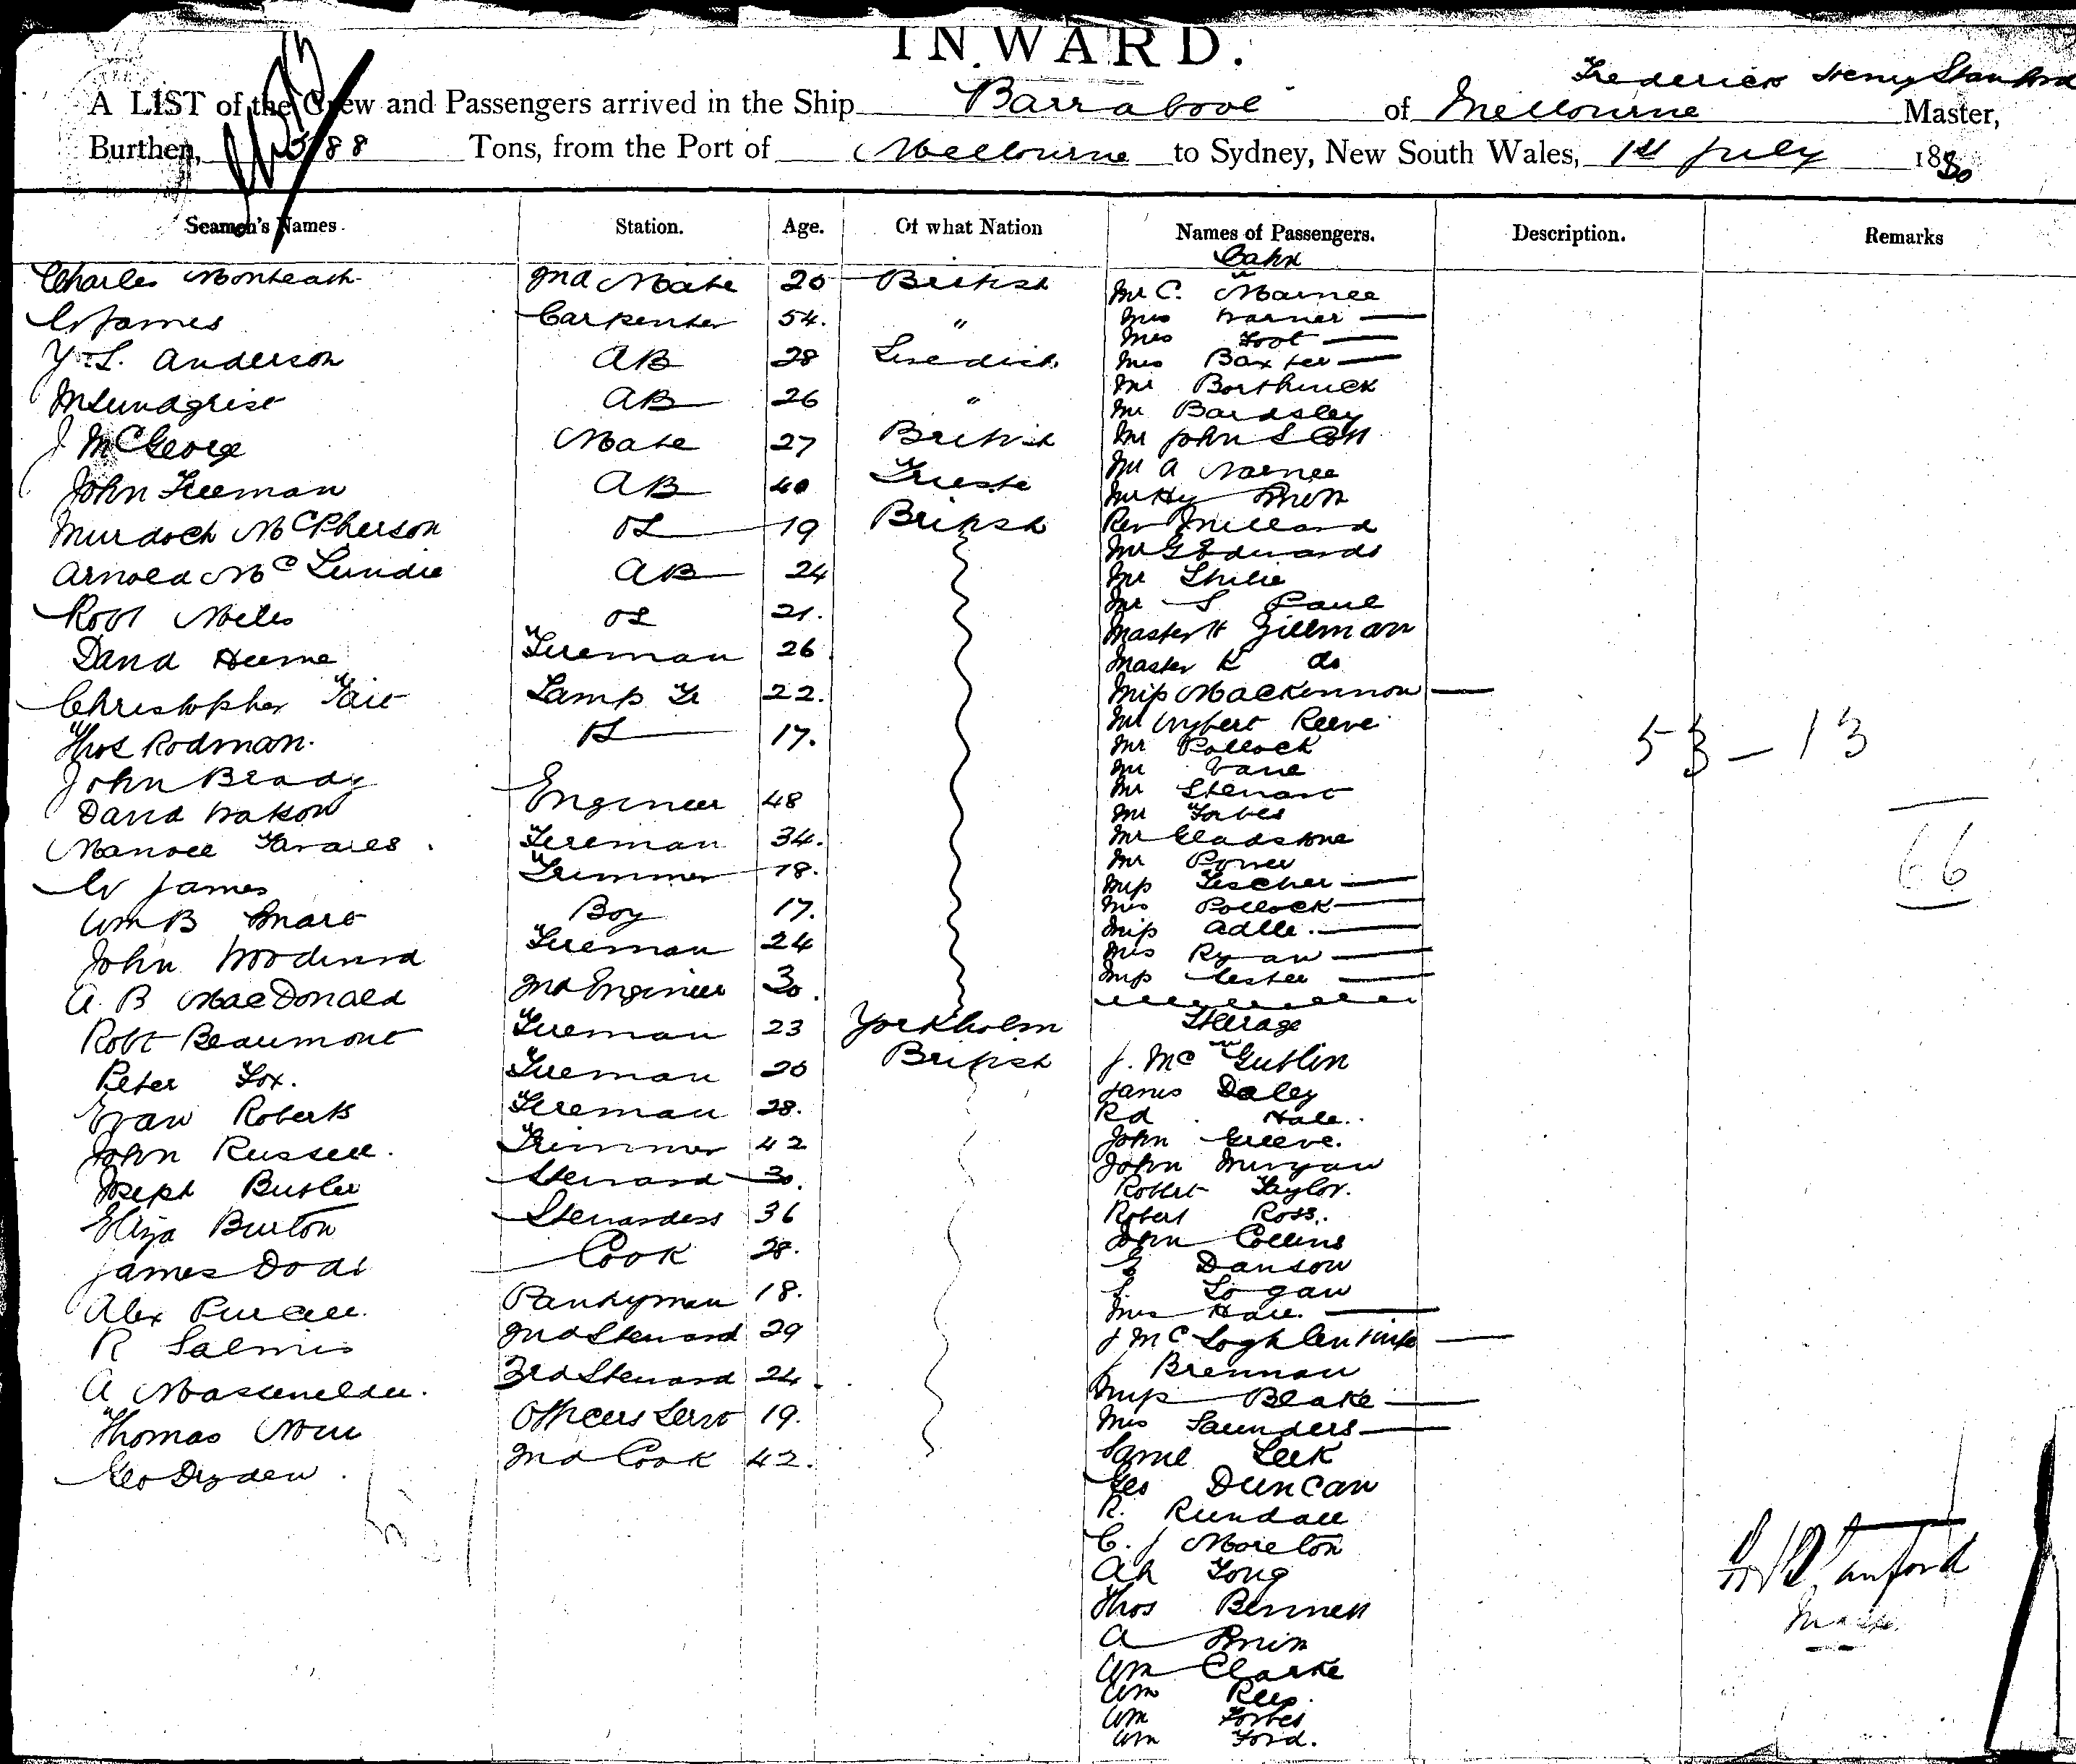 INWARD.
Frederick Henry Stanford
A LIST of the Crew and Passengers arrived in the Ship Barrabool of Melbourne Master,
Burthen, 588 Tons, from the Port of Melbourne to Sydney, New South Wales, 1st July 1880
Seamen's Names. Station. Age. Of what Nation Names of Passengers. Description. Remarks
Cabin
Charles Monteath 2nd Mate 20 British Mr C. Mainee
W James Carpenter 54. " Mrs Warner
Mrs Foot
Y. L. Anderson AB 28 Swedish Mrs Baxter
Mr Borthwick
M Lundgrist AB 26 " Mr Bardsley
J McGeorge Mate 27 British Mr John Scott
Mr A
John Freeman AB 40 Trieste Mr Hy
Murdoch McPherson OS 19 British Rev Millard
Mr G Edwards
Arnold Mc Lundie AB 24 Mr
Mr S Paul
Robt Miles OS 21. Master H Zillman
David Hume Fireman 26 Master K do
Christopher Tait Lamp Tr 22. Miss MacKinnon
Mr Wybert Reeve
Thos Rodman. 17. Mr Pollock
53 - 13
John Brady Mr Vane
Mr Stewart
David Watson Engineer 48 Mr Forbes
Manoel Tavares. Fireman 34. Mr Gladstone
66
Mr Power
W James Trimmer 18. Miss Fischer
Wm B Smart Boy 17. Mrs Pollock
Miss Adele.
John Woodward Fireman 24 Mrs Ryan
A. B MacDonald 2nd Engineer 30. Miss Lester
Robt Beaumont Fireman 23 Yorkholm Steerage
Peter Fox. Fireman 20 British J. Mc Gublin
James Daley
Evan Roberts Fireman 28. Rd Hall.
John Russell. Trimmer 42 John Greeve.
John
Joseph Butler Steward 30. Robert Taylor.
Eliza Burton Stewardess 36 Robert Ross.
John Collins
James Dodd Cook 28. E Danson
S. Logan
Alex Purcell. Pantryman 18. Mrs Hall.
R Salmis 2nd Steward 29 J McLoghlen
J Brennan
A. 3rd Steward 24. Miss Blake
Thomas Officers Servt 19. Mrs Saunders
Geo Dryden. 2nd Cook 42. Saml Leek
Geo Duncan
R. Rundall
C. J Moreton
Ah Fong
Thos Bennett
A
Wm Clarke
Wm Rees.
Wm Forbes
Wm Ford.
F H Stanford
Master